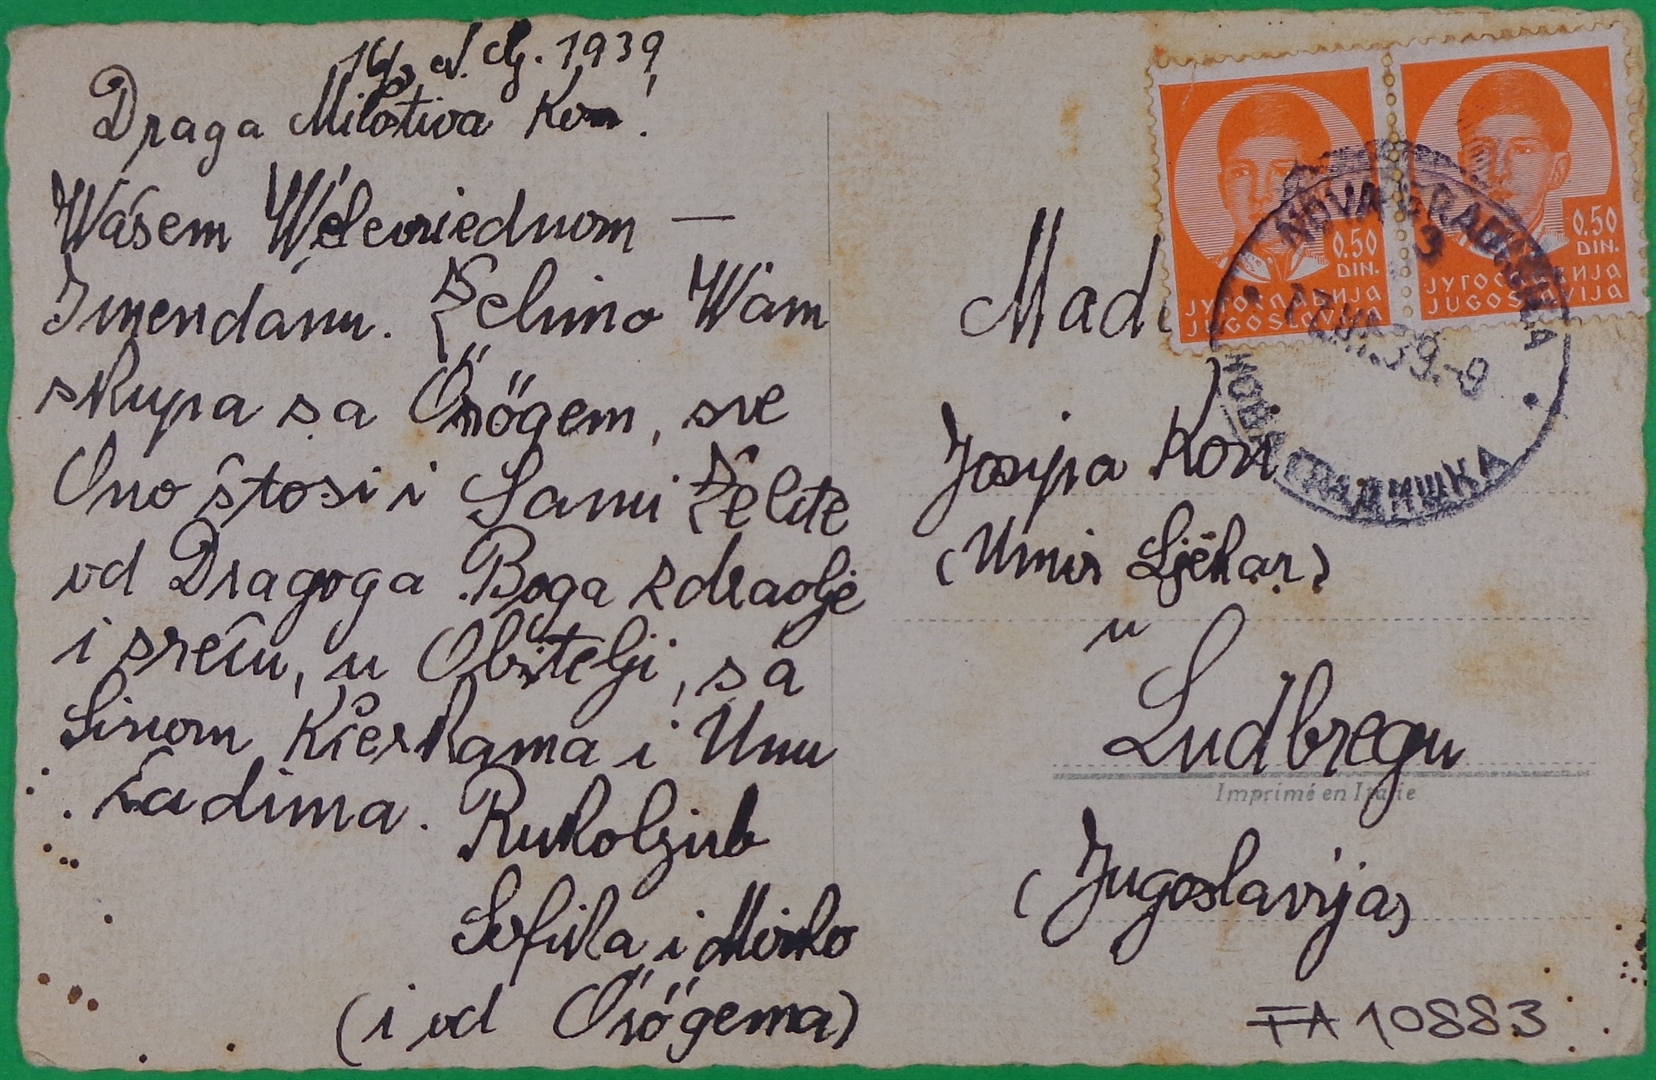 1939
Draga Milostiva Kon!
Wašem Wèlevriednom —
Imendanu. Želimo Wam
skupa sa Örögem, sve
Ono štosi i Sami Želite
od Dragoga Boga zdravlje
i sreću, u Obitelji, sa
Sinom Kćerkama i Unu
čadima.
Rukoljub
Sofika i Mirko
(i od Örögema)
0.50
DIN.
ЈУГОСЛАВИЈА
JUGOSLAVIJA
0.50
DIN.
ЈУГОСЛАВИЈА
JUGOSLAVIJA
NOVA GRADIŠKA
НОВА ГРАДИШКА
Mad
Josipa Kon
(Umir Ljékar)
u
Ludbregu
Imprimé en Italie
(Jugoslavija)
FA 10883